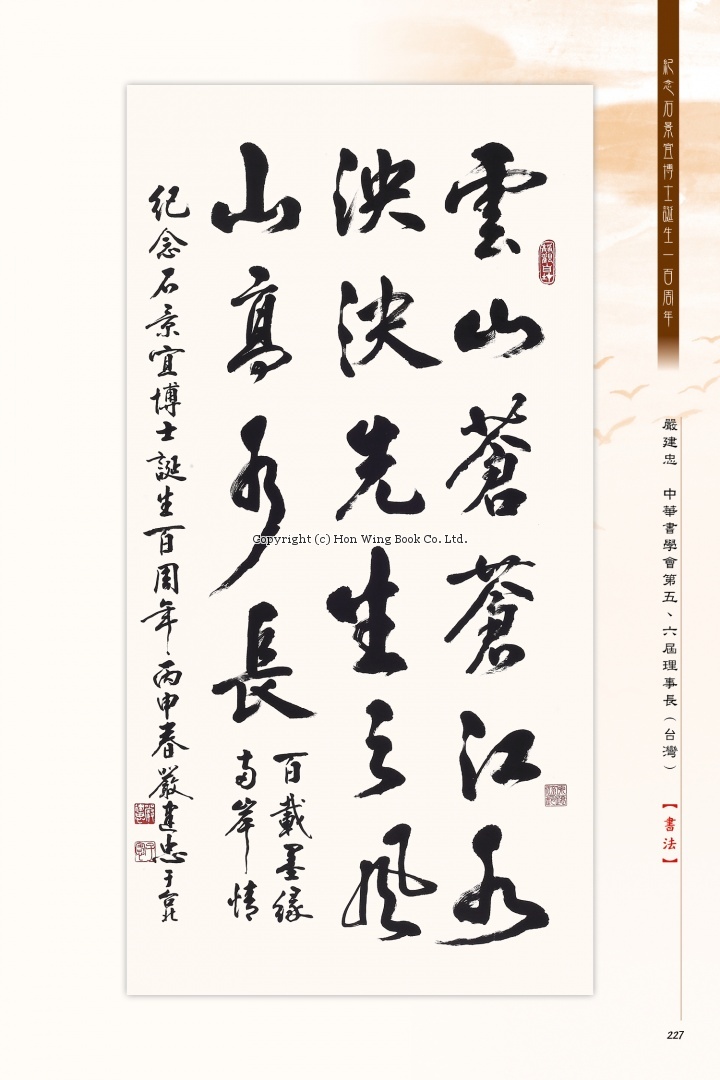 紀念石景宜博士誕生一百周年
嚴建忠 中華書學會第五、六屆理事長（台灣）
【書法】
雲山蒼蒼江水
泱泱先生之風
山高水長
百載墨緣
兩岸情
紀念石景宜博士誕生百周年、丙申春嚴建忠于台北
Copyright (c) Hon Wing Book Co. Ltd.
227